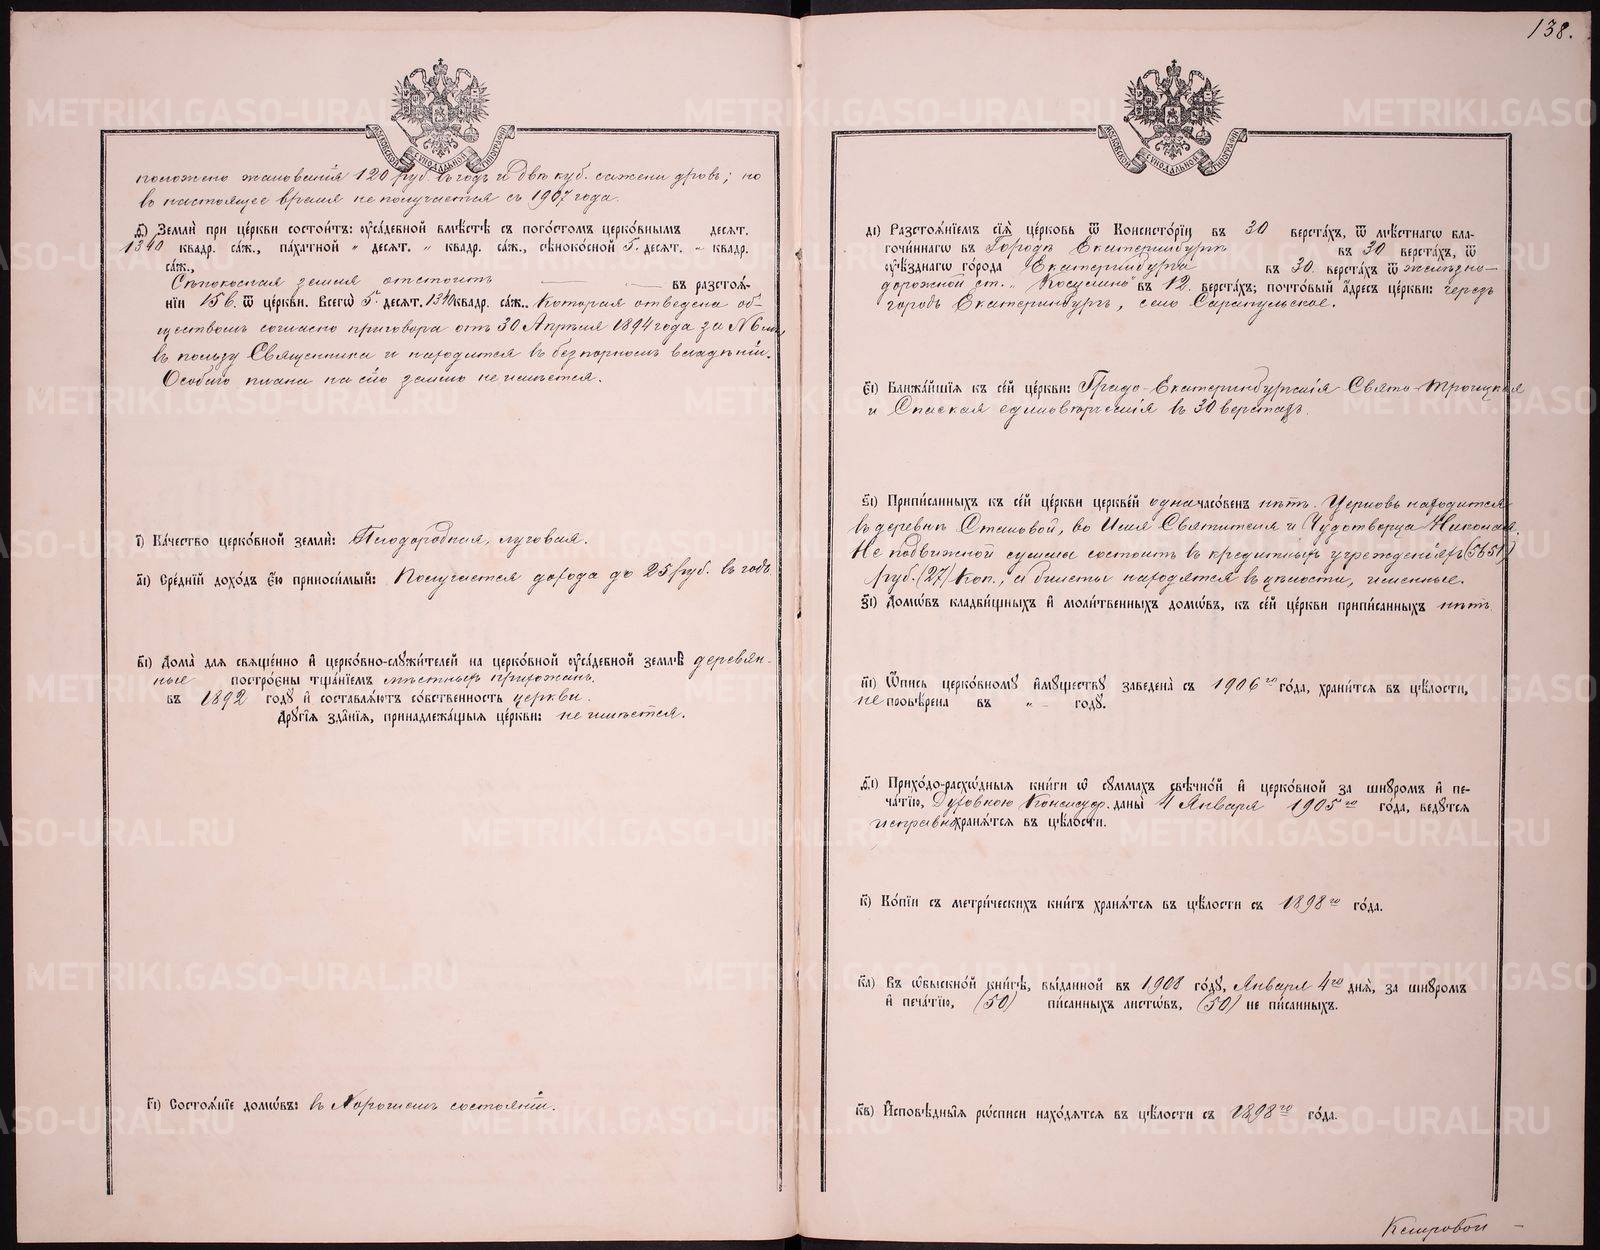 положено жалованія 120 руб. въ годъ и двѣ куб. сажени дровъ; но
въ настоящее время не получается съ 1907 года.
ѳ҃) Землѝ при це́ркви состои́тъ: ᲂу҆са́дебной вмѣ́стѣ съ пого́стомъ церко́внымъ десѧт.
1340 квадр. са́ж., па́хатной „ десѧт. „ квадр. са́ж., сѣноко́сной 5. десѧт. „ квадр.
са́ж.,
Сѣнокосная земля отстоитъ въ разстоѧ́-
нїи 15 в. ѿ це́ркви. Всегѡ̀ 5. десѧт. 1340 квадр. са́ж. Которая отведена об-
ществомъ согласно приговора отъ 30 Апрѣля 1894 года за №6
въ пользу Священника и находится въ безпорномъ владѣніи.
Особаго плана на сію землю не имѣется.
і҃) Ка́чество церко́вной землѝ: Плодородная, луговая.
а҃і) Сре́днїй дохо́дъ є҆́ю приноси́мый: Получается дохода до 25 руб. въ годъ.
в҃і) Дома̀ для свѧще́нно и҆ церко́вно-служи́телей на церко́вной ᲂу҆са́дебной землѣ̀ деревян-
ные постро́ены тща́нїемъ мѣстныхъ прихожанъ.
въ 1892 году̀ и҆ составлѧ́ютъ со́бственность церкви.
Дрꙋгі́ѧ зда̑нїѧ, принадлежа́щыѧ це́ркви: не имѣется.
г҃і) Состоѧ́нїе домѡ́въ: въ хорошемъ состояніи.
138.
д҃і) Разстоѧ́нїемъ сїѧ̀ це́рковь ѿ Консисто́рїи въ 30 верста́хъ, ѿ мѣ́стнагѡ бла-
гочи́ннагѡ въ Городѣ Екатеринбургѣ въ 30 верста́хъ, ѿ
ᲂу҆ѣ́зднагѡ го́рода Екатеринбурга въ 30. верста́хъ ѿ желѣзно-
дорожной ст. „Косулино" въ 12 верста́хъ; почто́вый а҆́дресъ це́ркви: черезъ
городъ Екатеринбургъ, село Сарапульское.
є҃і) Ближа́йшїѧ къ се́й це́ркви: Градо-Екатеринбургскія Свято-Троицкая
и Спаская единовѣрческія въ 30 верстахъ.
ѕ҃і) Припи́санныхъ къ се́й це́ркви церкве́й одна часо́венъ нѣтъ. Церковь находится
въ деревнѣ Становой, во Имя Святителя и Чудотворца Николая.
Не подвижной суммы состоитъ въ кредитныхъ учрежденіяхъ (5651)
руб. (27) коп., и билеты находятся въ цѣлости, именные.
з҃і) Домѡ́въ кладби́щныхъ и҆ моли́твенныхъ домѡ́въ, къ се́й це́ркви припи́санныхъ нѣтъ
и҃і) Ѡ҆́пись церко́вномꙋ и҆мꙋ́ществꙋ заведена̀ съ 1906го го́да, храни́тсѧ въ цѣ́лости,
не провѣ́рена въ „ — годꙋ̀.
ѳ҃і) Прихо́до-расхѡ́дныѧ кни́ги ѡ҆ сꙋ́ммахъ свѣчно́й и҆ церко́вной за шнꙋро́мъ и҆ пе-
ча́тїю, Духовною Консистор. даны̀ 4 Января 1905го го́да, ведꙋ́тсѧ
исправно хранѧ́тсѧ въ цѣ́лости.
к҃) Ко́пїи съ метри́ческихъ кни́гъ хранѧ́тсѧ въ цѣ́лости съ 1898го го́да.
к҃а) Въ ѡ҆́быскной кни́гѣ, вы́данной въ 1908 го́дꙋ, Января 4го днѧ̀, за шнꙋро́мъ
и҆ печа́тїю, (50) пи́санныхъ листѡ́въ, (50) не пи́санныхъ.
к҃в) И҆сповѣ́дныѧ рѡ́списи нахо́дѧтсѧ въ цѣ́лости съ 1898го го́да.